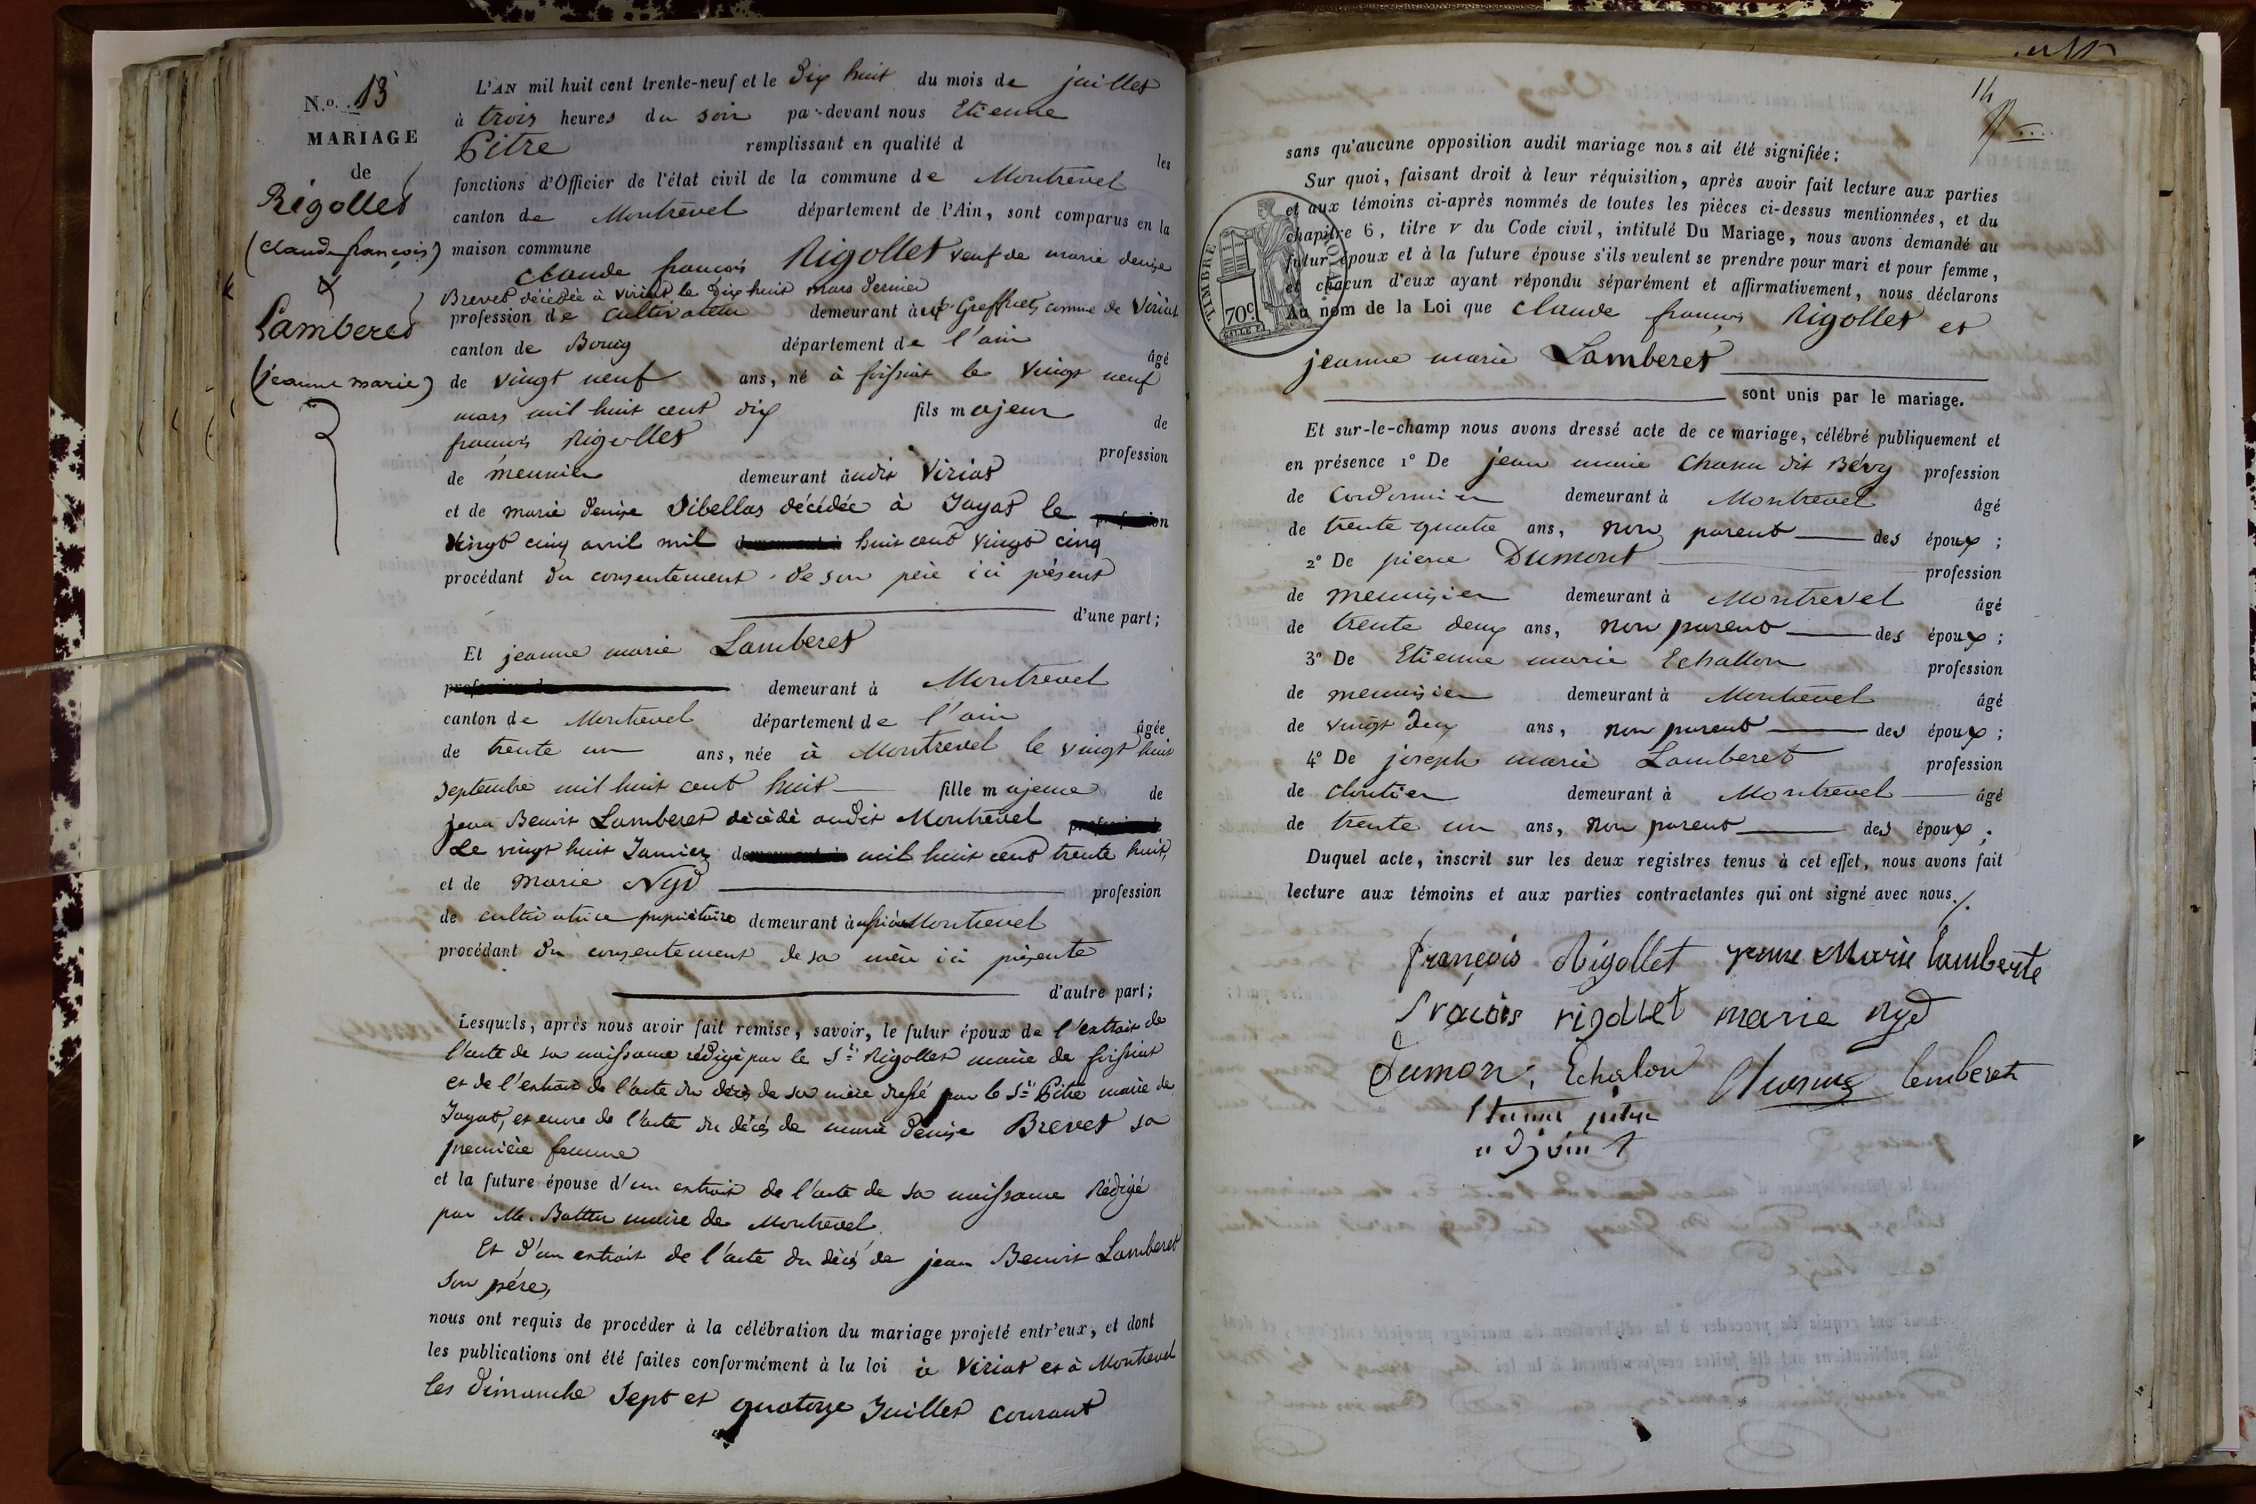 N.o. 13
MARIAGE
de
Rigollet
(Claude françois)
&
Lamberet
(jeanne marie)
L'AN mil huit cent trente-neuf et le Dix huit du mois de juillet
à trois heures du soir par-devant nous Etienne
Pitre remplissant en qualité d les
fonctions d'Officier de l'état civil de la commune de Montrevel
canton de Montrevel département de l'Ain, sont comparus en la
maison commune
Claude françois Rigollet veuf de marie denise
Brevet décédée à Viriat le Dix huit mars dernier
profession de cultivateur demeurant à Greffiets, comune de Viriat
canton de Bourg département de l'ain âgé
de vingt neuf ans, né à foissiat le vingt neuf
mars mil huit cent dix fils majeur de
françois Rigollet profession
de meunier demeurant audit Viriat
et de marie denise Sibellas décédée à Jayat le
vingt cinq avril mil huit cent vingt cinq
procédant du consentement de son père ici présent
d'une part;
Et jeanne marie Lamberet
demeurant à Montrevel
canton de Montrevel département de l'ain âgée
de trente un ans, née à Montrevel le vingt huit
septembre mil huit cent huit fille majeure de
jean Benoit Lamberet décédé audit Montrevel
le vingt huit Janvier mil huit cent trente huit,
et de Marie Nyd profession
de cultivatrice propriétaire demeurant aussi à Montrevel
procédant du consentement de sa mère ici présente
d'autre part;
Lesquels, après nous avoir fait remise, savoir, le futur époux de l'extrait de
l'acte de sa naissance rédigé par le Sr. Rigollet maire de foissiat
et de l'extrait de l'acte du décès de sa mère dressé par le Sr. Pitre maire de
Jayat, et encore de l'acte du décès de marie denise Brevet sa
première femme
et la future épouse d'un extrait de l'acte de sa naissance Rédigé
par Mr. maire de Montrevel
Et d'un extrait de l'acte du décès de jean Benoit Lamberet
son père,
nous ont requis de procéder à la célébration du mariage projeté entr'eux, et dont
les publications ont été faites conformément à la loi à Viriat et à Montrevel
les dimanche Sept et quatorze Juillet courant
14
sans qu'aucune opposition audit mariage nous ait été signifiée;
Sur quoi, faisant droit à leur réquisition, après avoir fait lecture aux parties
et aux témoins ci-après nommés de toutes les pièces ci-dessus mentionnées, et du
chapitre 6, titre v du Code civil, intitulé Du Mariage, nous avons demandé au
futur époux et à la future épouse s'ils veulent se prendre pour mari et pour femme,
et chacun d'eux ayant répondu séparément et affirmativement, nous déclarons
Au nom de la Loi que Claude françois Rigollet et
TIMBRE ROYAL
70c
jeanne marie Lamberet
sont unis par le mariage.
Et sur-le-champ nous avons dressé acte de ce mariage, célébré publiquement et
en présence 1° De jean marie Chanu dit Bévy profession
de Cordonnier demeurant à Montrevel âgé
de trente quatre ans, non parent des époux;
2° De pierre Dumont profession
de menuisier demeurant à Montrevel âgé
de trente deux ans, non parent des époux;
3° De Etienne marie Echallon profession
de menuisier demeurant à Montrevel âgé
de vingt deux ans, non parent des époux;
4° De joseph marie Lamberet profession
de cloutier demeurant à Montrevel âgé
de trente un ans, non parent des époux;
Duquel acte, inscrit sur les deux registres tenus à cet effet, nous avons fait
lecture aux témoins et aux parties contractantes qui ont signé avec nous./.
françois Rigollet Jeanne Marie lamberte
fraçois rigollet marie nyd
Dumon; Echalon lemberet
Etienne pitre
adjoint